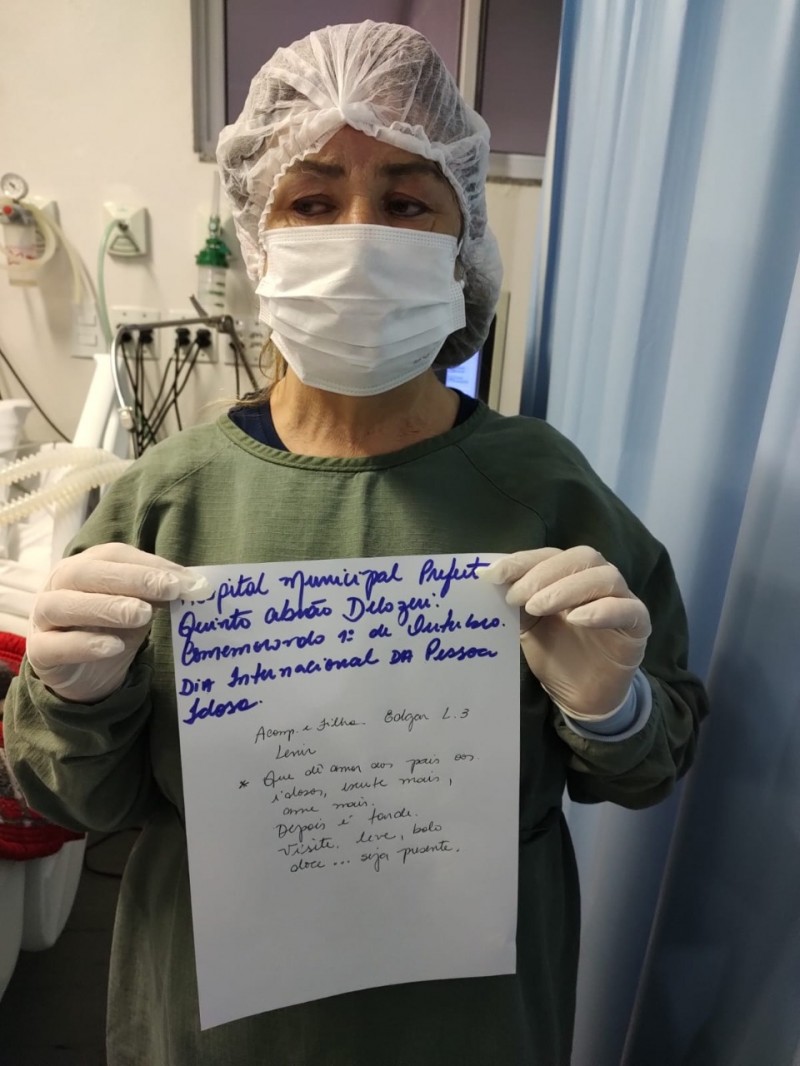 Hospital Municipal Prefeit
Quinto Abrão Delazeri.
Comemorando 1º de Outubro.
Dia Internacional DA Pessoa
Idosa.
Acomp. e Filha. Edgar L. 3
Lenir
* Que dê amor aos pais aos
idosos, escute mais,
ame mais.
Depois é tarde.
Visite. leve, bolo
doce ... seja presente.